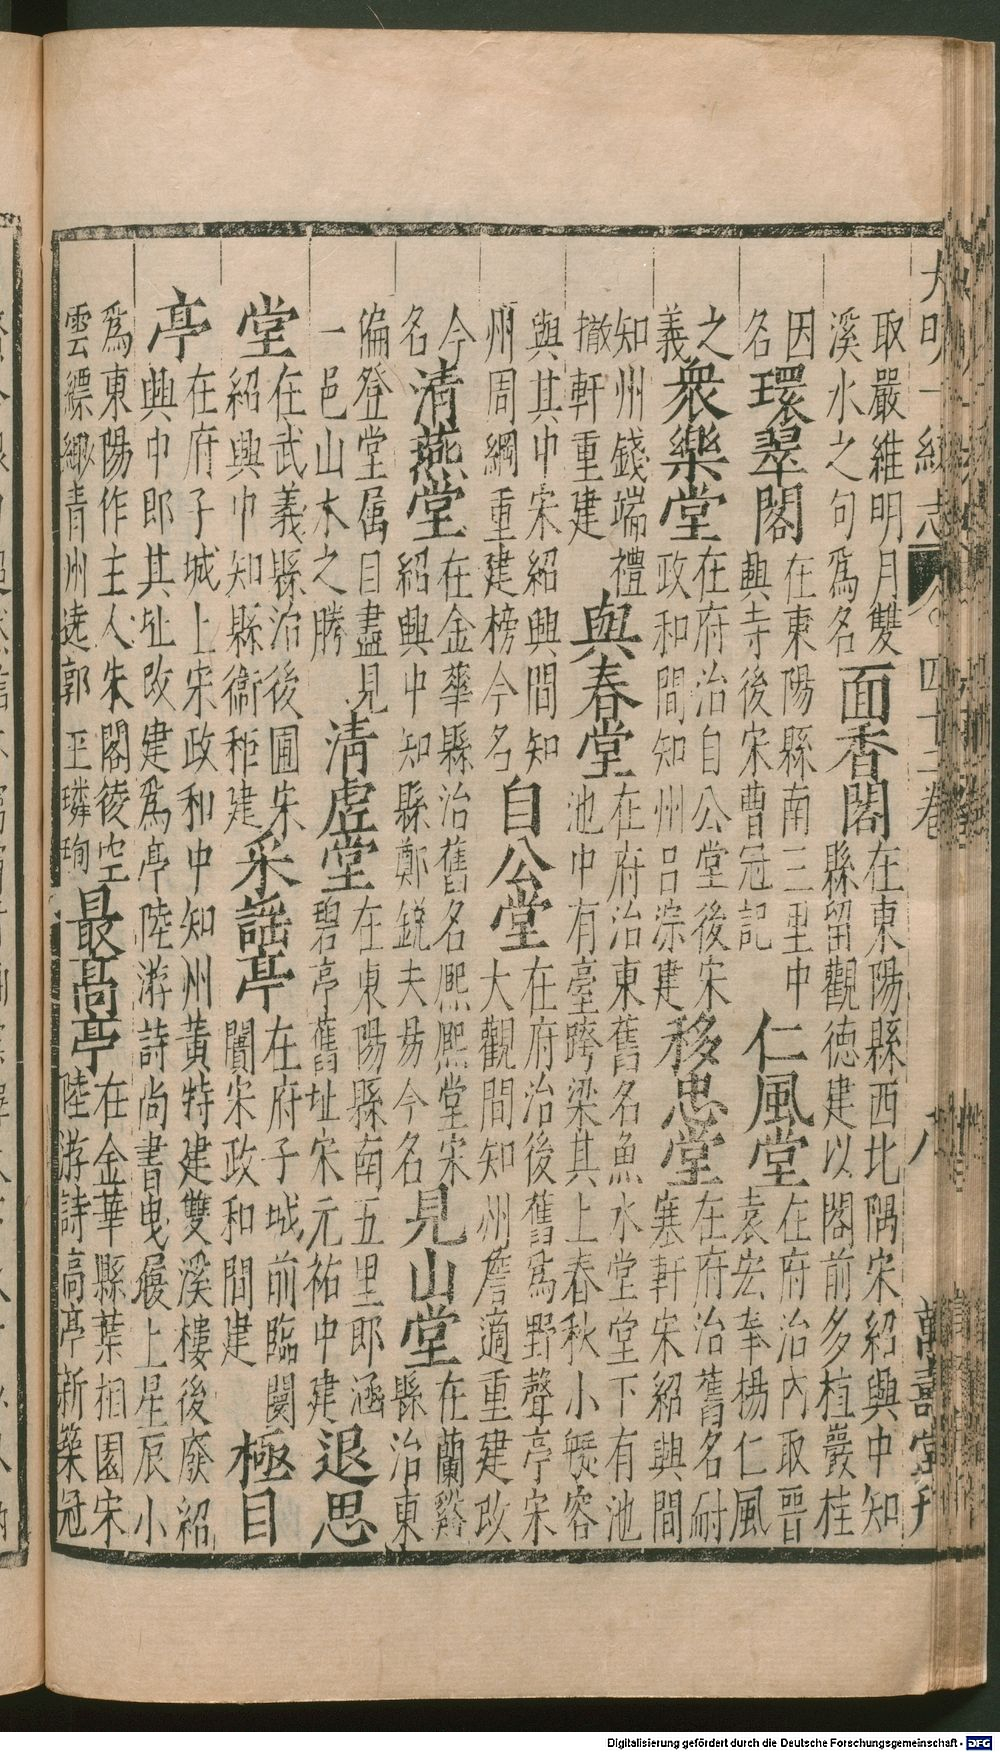 大明一統志 卷四十二卷 八 萬壽堂刊
取嚴維明月雙溪水之句爲名面香閣在東陽縣西北隅宋紹興中知縣留觀德建以閣前多植巖桂
因名環翠閣在東陽縣南三里中興寺後宋曹冠記仁風堂在府治內取晉袁宏奉楊仁風
之義衆樂堂在府治自公堂後宋政和間知州呂淙建移忠堂在府治舊名耐寒軒宋紹興間
知州錢端禮撤軒重建與春堂在府治東舊名魚水堂堂下有池池中有臺跨梁其上春秋小容
與其中宋紹興間知州周綱重建榜今名自公堂在府治後舊爲野聲亭宋大觀間知州詹適重建改
今名清燕堂在金華縣治舊名熈熈堂宋紹興中知縣鄭銳夫易今名見山堂在蘭谿縣治東
偏登堂属目盡見一邑山水之勝清虛堂在東陽縣南五里郎涵碧亭舊址宋元祐中建退思
堂在武義縣治後圃宋紹興中知縣衞秬建采謡亭在府子城前臨闤闠宋政和間建極目
亭在府子城上宋政和中知州黃特建雙溪樓後廢紹興中郎其址改建爲亭陸游詩尚書曳履上星辰小
爲東陽作主人朱閣徒空雲縹緲青州遶郭玉璘珣最高亭在金華縣葉相園宋陸游詩高亭新築冠
Digitalisierung gefördert durch die Deutsche Forschungsgemeinschaft - DFG